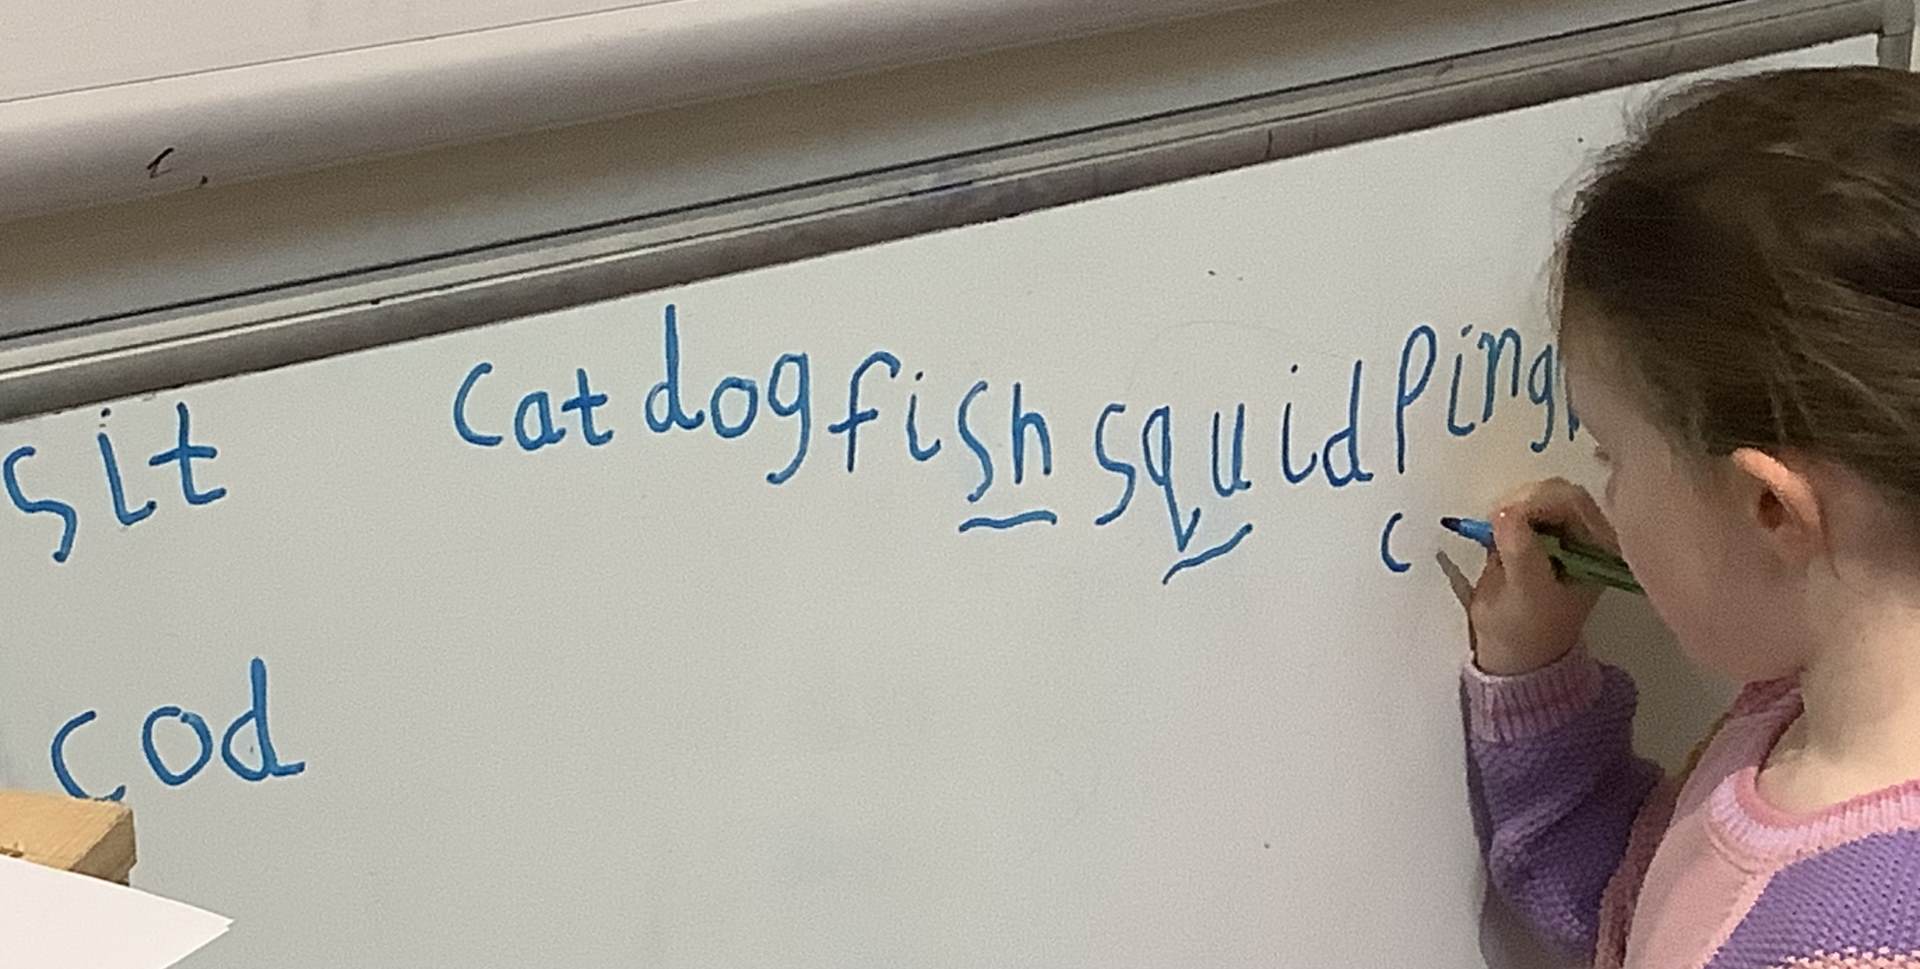 sit
cat dog fish squid Ping
c
cod